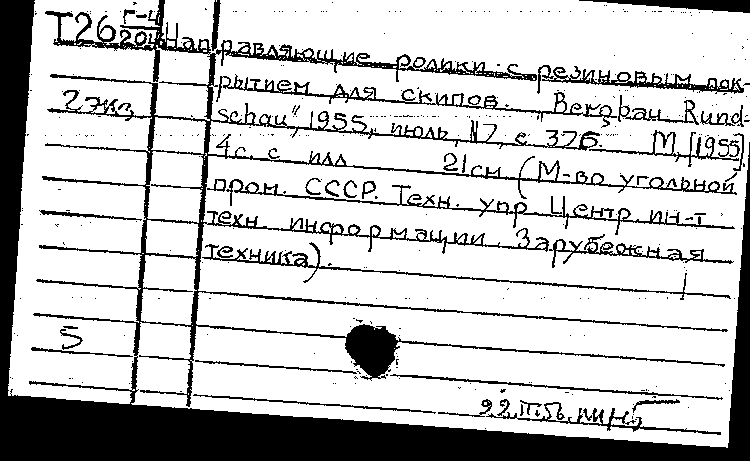 Т26 Г-4/204 Направляющие ролики с резиновым пок-
рытием для скипов. „Bergbau Rund-
2 экз
schau", 1955, июль, №7, с. 376. М, [1955]
4с. с илл 21см (М-во угольной
пром. СССР. Техн. упр Центр. ин-т
техн. информации Зарубежная
техника).
5